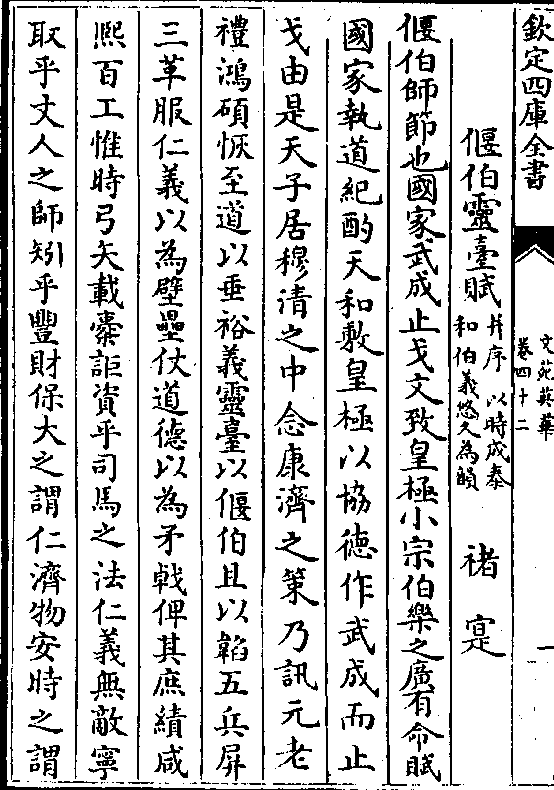 欽定四庫全書
文苑英華
卷四十二
一
偃伯靈臺賦 并序 以時成泰
和伯義悠久為韻
禇寔
偃伯師節也國家武成止戈文致皇極小宗伯樂之廣有命賦
國家執道紀酌天和敷皇極以協徳作武成而止
戈由是天子居穆清之中念康濟之策乃訊元老
禮鴻碩恢至道以垂裕義靈臺以偃伯且以韜五兵屏
三革服仁義以為壁壘仗道徳以為矛戟俾其庶績咸
熙百工惟時弓矢載櫜詎資乎司馬之法仁義無敵寧
取乎丈人之師矧乎豐財保大之謂仁濟物安時之謂